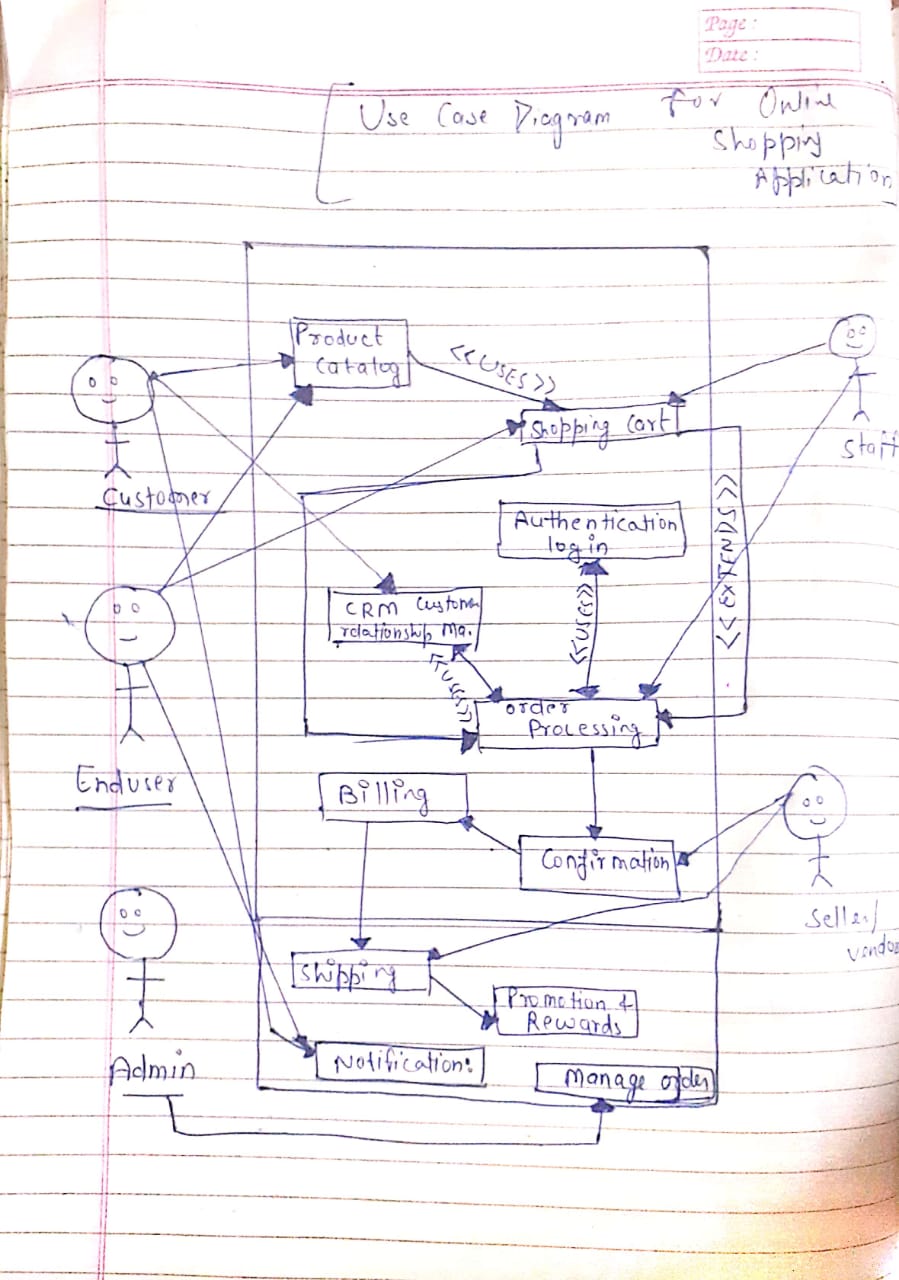 Page :
Date :
Use Case Diagram for Online
Shopping
Application
Product
Catalog
<<USES>>
Shopping Cart
Staff
Customer
Authentication
log in
<<EXTENDS>>
CRM Customer
relationship Ma.
<<USES>>
<<USES>>
order
Processing
Enduser
Billing
Confirmation
Seller/
vendor
Shipping
Promotion &
Rewards
Admin
Notification:
Manage order